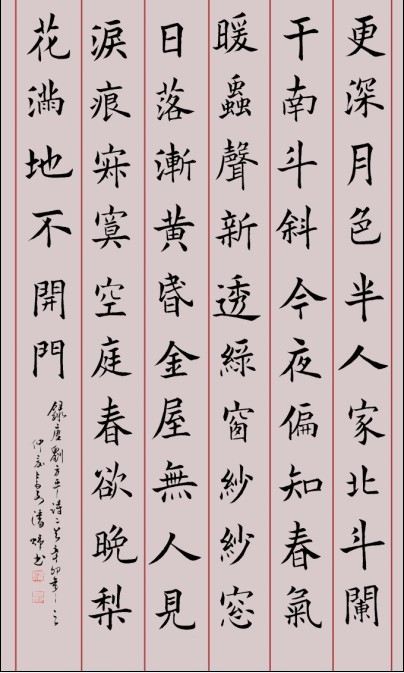 更深月色半人家北斗闌
干南斗斜今夜偏知春氣
暖蟲聲新透綠窗紗紗窓
日落漸黃昏金屋無人見
淚痕寂寞空庭春欲晚梨
花滿地不開門
錄唐劉方平詩二首辛卯年之
仲秋